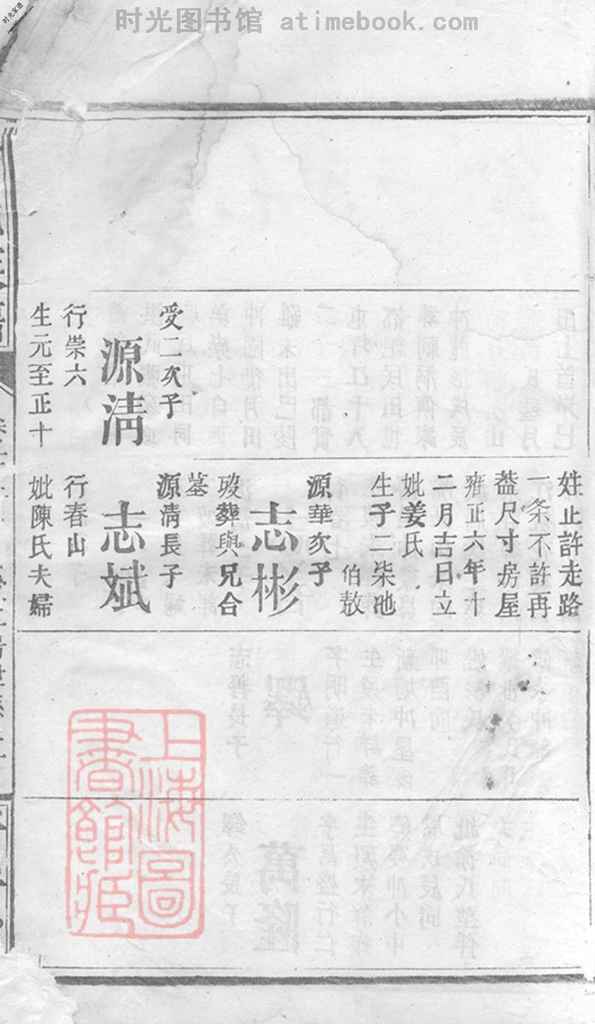 时光图书馆 atimebook.com
受二次子
源淸
行崇六
生元至正十
姓止許走路
一条不許再
葢尺寸房屋
雍正六年十
二月吉日立
妣姜氏
生子二柒池
伯敖
源華次子
志彬
歿葬與兄合
墓
源清長子
志斌
行春山
妣陳氏夫婦
上海圖書館藏